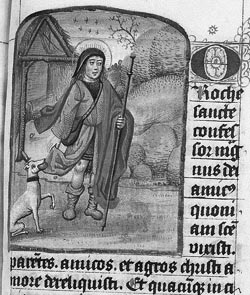 O
Roche
sancte
confes
sor mag
nus dei
amic9
quoni
am sce
vixisti.
parētes. amicos. et agros christi a
more dereliquisti. Et quacūqꝫ in ci